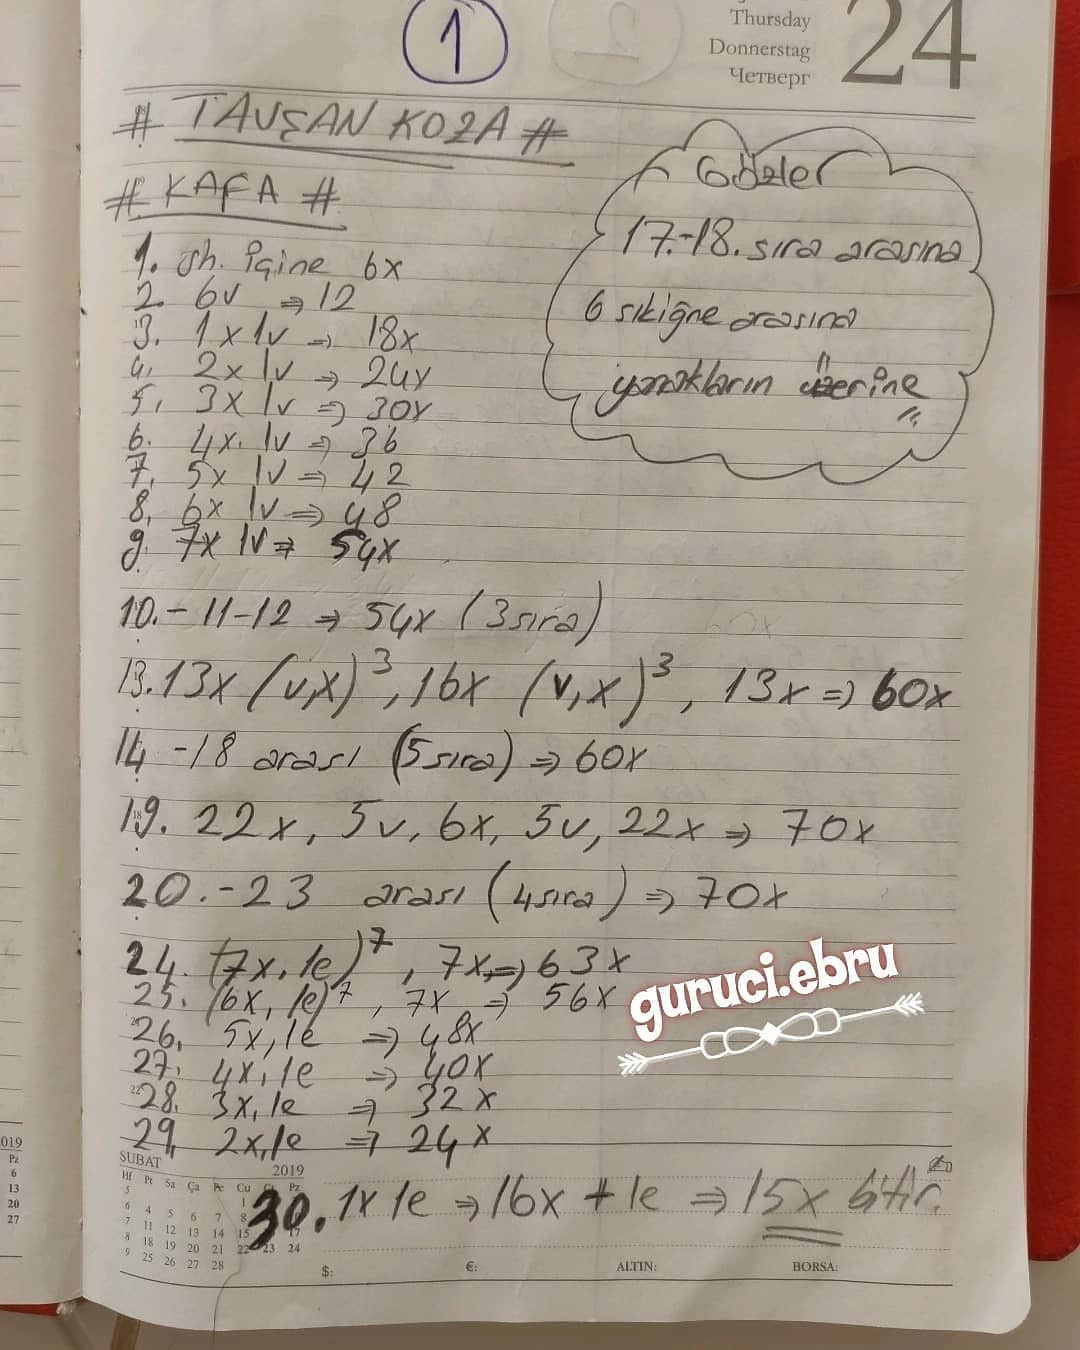 1
Thursday
Donnerstag
Четверг
24
# TAVŞAN KOZA #
# KAFA #
Gözler
17.-18. sıra arasına
6 sıkiğne arasına
yanakların üzerine
1. sh. içine 6x
2. 6v ⇒ 12
3. 1x 1v ⇒ 18x
4. 2x 1v ⇒ 24x
5. 3x 1v ⇒ 30x
6. 4x. 1v ⇒ 36
7. 5x 1v ⇒ 42
8. 6x 1v ⇒ 48
9. 7x 1v ⇒ 54x
10.-11-12 ⇒ 54x (3 sıra)
13. 13x (v,x)³, 16x (v,x)³, 13x ⇒ 60x
14 -18 arası (5 sıra) ⇒ 60x
19. 22x, 5v, 6x, 5v, 22x ⇒ 70x
20.-23 arası (4 sıra) ⇒ 70x
24. (7x, 1e)⁷, 7x, ⇒ 63x
25. (6x, 1e)⁷, 7x ⇒ 56x
26. 5x, 1e ⇒ 48x
27. 4x, 1e ⇒ 40x
28. 3x, 1e ⇒ 32x
29. 2x, 1e ⇒ 24x
30. 1x 1e ⇒ 16x + 1e ⇒ 15x bitir.
guruci.ebru
ŞUBAT 2019
Hf Pt Sa Ça Pe Cu Ct Pz
5 1
6 4 5 6 7 8
7 11 12 13 14 15 17
8 18 19 20 21 22 23 24
9 25 26 27 28
$: €: ALTIN: BORSA:
2019
Pz
6
13
20
27